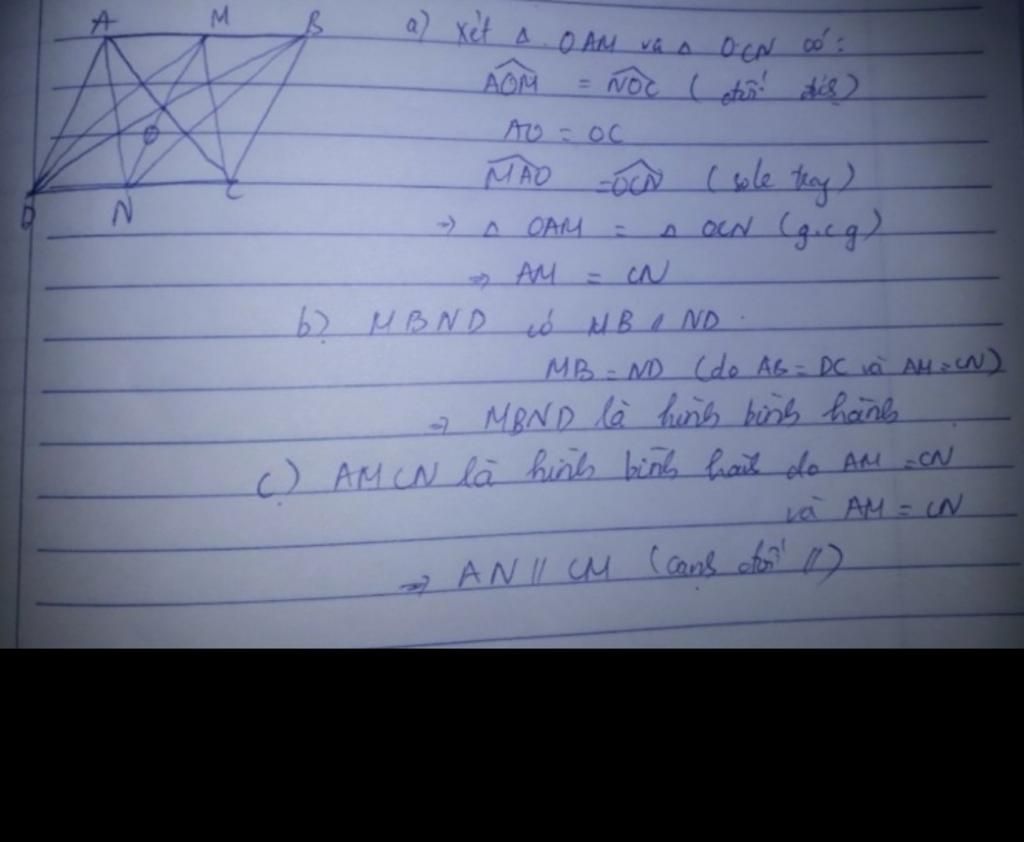 A M B
D N C
O
a) Xét Δ OAM và Δ OCN có:
AOM = NOC (đối đỉnh)
AO = OC
MAO = OCN (sole trog)
→ Δ OAM = Δ OCN (g.c.g)
⇒ AM = CN
b) MBND có MB // ND.
MB = ND (do AB = DC và AM = CN)
⇒ MBND là hình bình hành
c) AMCN là hình bình hàh do AM = CN
và AM = CN
⇒ AN // CM (cạnh đối //)